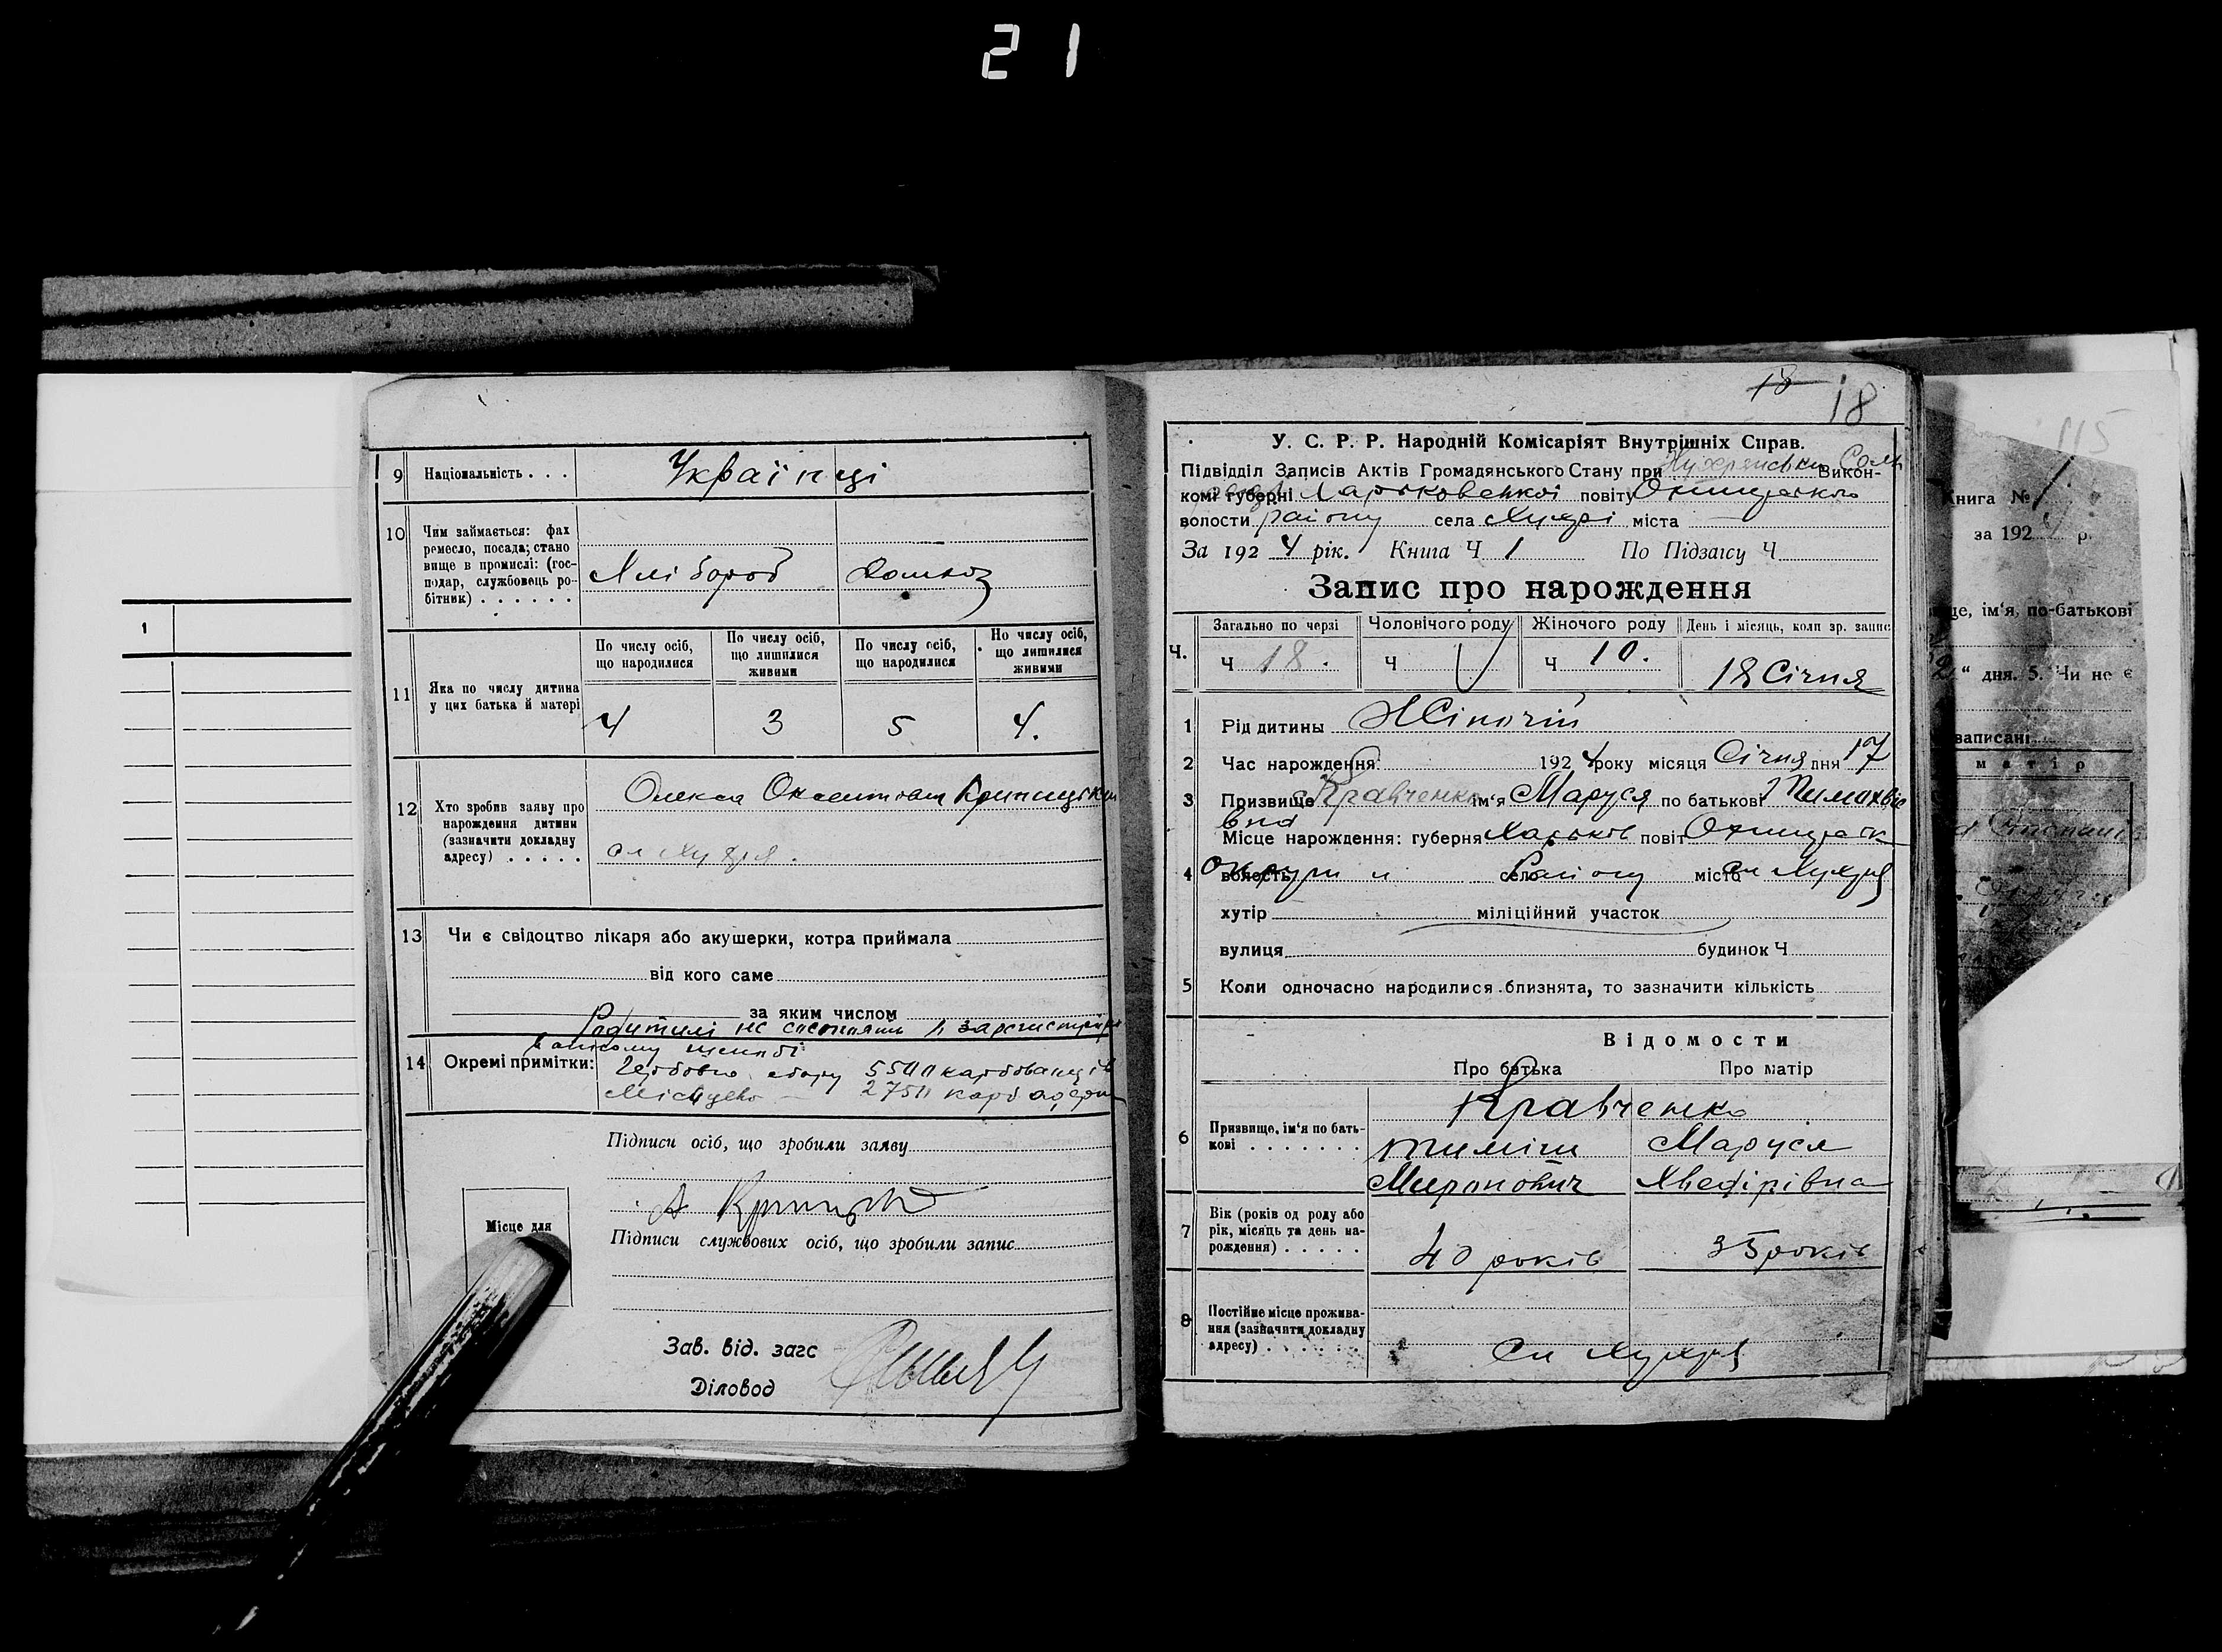 21
9 Національність . . . Українці
10 Чим займається: фах
ремесло, посада; стано
вище в промислі: (гос-
подар, службовець ро-
бітник) . . . . . .
Хлібороб
11 Яка по числу дитина
у цих батька й матері
По числу осіб,
що народилися
По числу осіб,
що лишилися
живими
По числу осіб,
що народилися
Но числу осіб,
що лишилися
живими
4 3 5 4.
12 Хто зробив заяву про
нарождення дитини
(зазначити докладну
адресу) . . . . .
Олекса
сл Хухря.
13 Чи є свідоцтво лікаря або акушерки, котра приймала
від кого саме
за яким числом
14 Окремі примітки:
збору 5500 карбованців
2750 карб
Підписи осіб, що зробили заяву
Місце для
Підписи службових осіб, що зробили запис
Зав. від. загс
Діловод
18 18
У. С. Р. Р. Народній Комісаріят Внутрішніх Справ.
Підвідділ Записів Актів Громадянського Стану при Викон-
комі губерні Харьковськоі повіту
волости району села Хухрі міста
За 1924 рік. Книга Ч 1 По Підзагсу Ч
Запис про нарождення
Ч. Загально по черзі Чоловічого роду Жіночого роду День і місяць, коли зр. запис
Ч 18. Ч Ч 10. 18 Січня
1 Рід дитины Жіночій
2 Час нарождення: 1924 року місяця Січня дня 17
3 Призвище Кравченко ім'я Маруся по батькові Тимохвіє
вна
Місце нарождення: губерня Харьків повіт Охтирськ
4 волость округи село Району місто сл Хухря
хутір міліційний участок
вулиця будинок Ч
5 Коли одночасно народилися близнята, то зазначити кількість
Відомости
Про батька Про матір
Кравченко
6 Призвище, ім'я по бать-
кові . . . . . . .
Тиміш Маруся
Миронович Хведірівна
7 Вік (років од роду або
рік, місяць та день на-
рождення) . . . . .
40 років 35 років
8 Постійне місце прожива-
ння (зазначити докладну
адресу) . . . . . .
Сл Хухря
1
115
Книга № 1
за 192 р.
ім'я, по-батькові
“ дня. 5. Чи не є
записані
матір